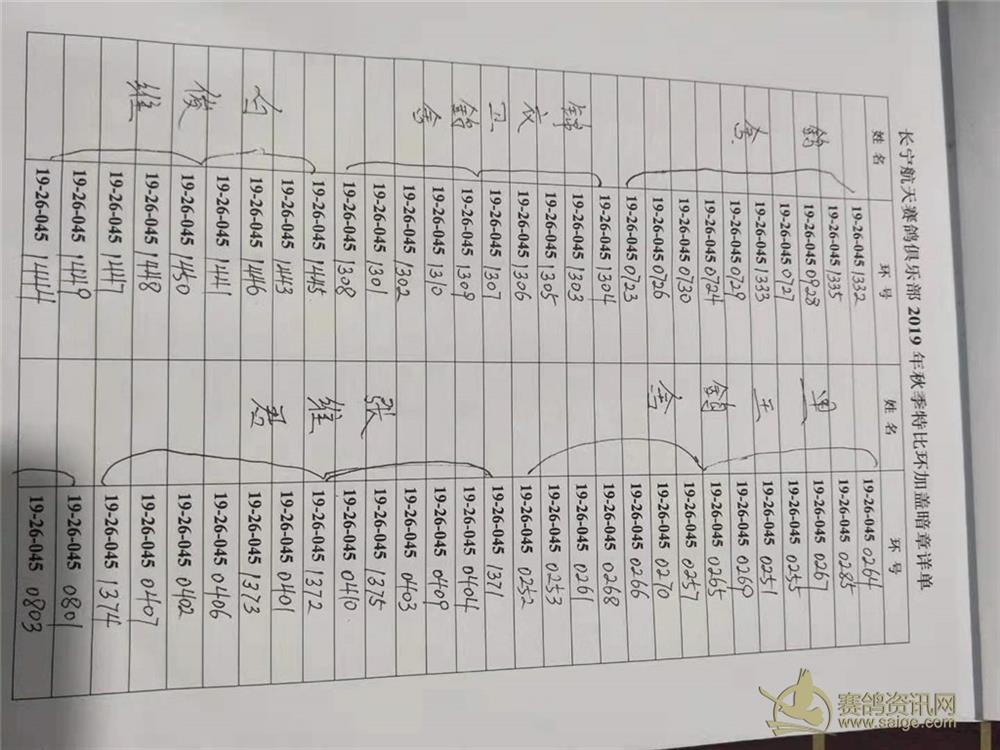 长宁航天赛鸽俱乐部 2019 年秋季特比环加盖暗章详单
姓名 环号 姓名 环号
19-26-045 1332 19-26-045 0264
19-26-045 1335 19-26-045 0285
19-26-045 0928 19-26-045 0267
19-26-045 0727 19-26-045 0255
19-26-045 1333 19-26-045 0251
19-26-045 0729 19-26-045 0269
19-26-045 0724 19-26-045 0265
19-26-045 0730 19-26-045 0257
19-26-045 0726 19-26-045 0270
19-26-045 0723 19-26-045 0266
锦衣卫鸽舍
19-26-045 1304 19-26-045 0268
19-26-045 1303 19-26-045 0261
19-26-045 1305 19-26-045 0253
19-26-045 1306 19-26-045 0252
张维君
19-26-045 1307 19-26-045 1371
19-26-045 1309 19-26-045 0404
19-26-045 1310 19-26-045 0409
19-26-045 1302 19-26-045 0403
19-26-045 1301 19-26-045 1375
19-26-045 1308 19-26-045 0410
白俊维
19-26-045 1445 19-26-045 1372
19-26-045 1443 19-26-045 0401
19-26-045 1446 19-26-045 1373
19-26-045 1441 19-26-045 0406
19-26-045 1450 19-26-045 0402
19-26-045 1448 19-26-045 0407
19-26-045 1447 19-26-045 1374
19-26-045 1449 19-26-045 0801
19-26-045 1444 19-26-045 0803
赛鸽资讯网
www.saige.com